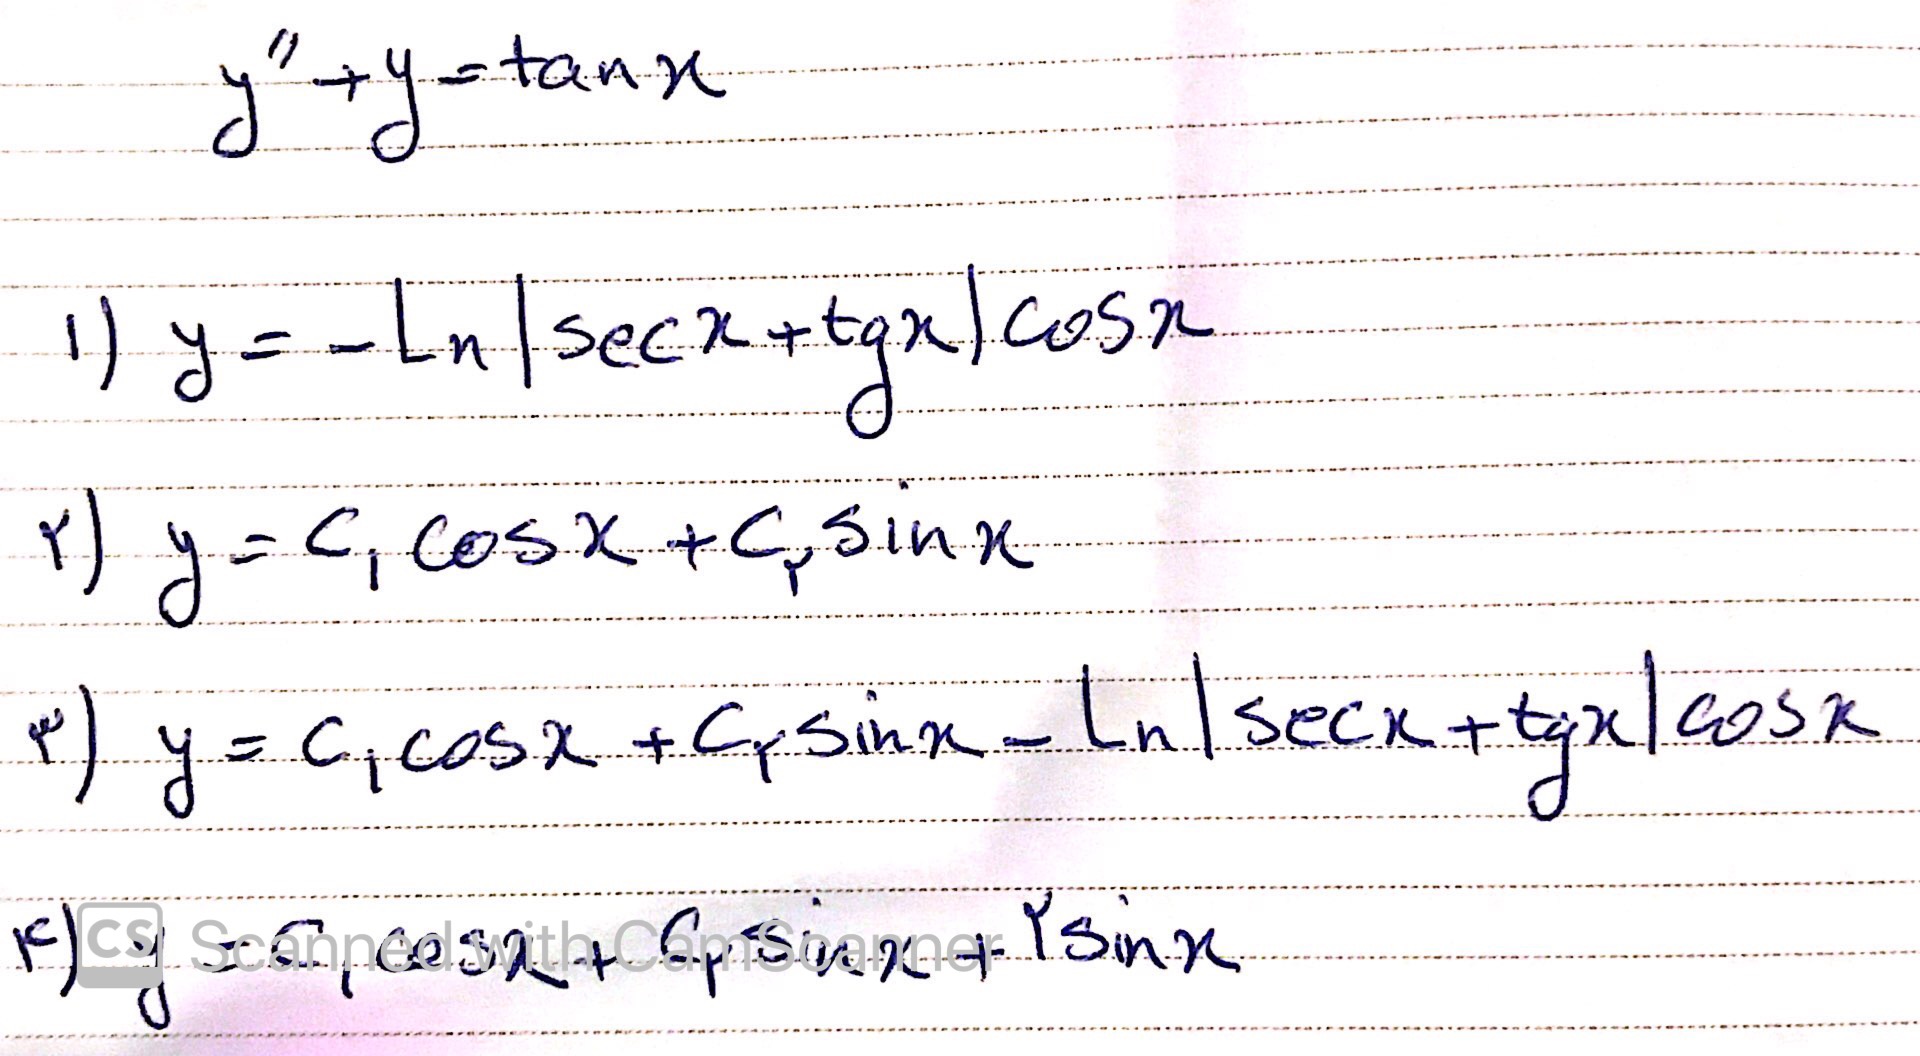 y" + y = tan x
1) y = - Ln | sec x + tg x | cos x
۲) y = C₁ cos x + C۲ sin x
۳) y = C₁ cos x + C۲ sin x - Ln | sec x + tg x | cos x
۴) y = C₁ cos x + C۲ sin x + ۲ sin x
CS Scanned with CamScanner